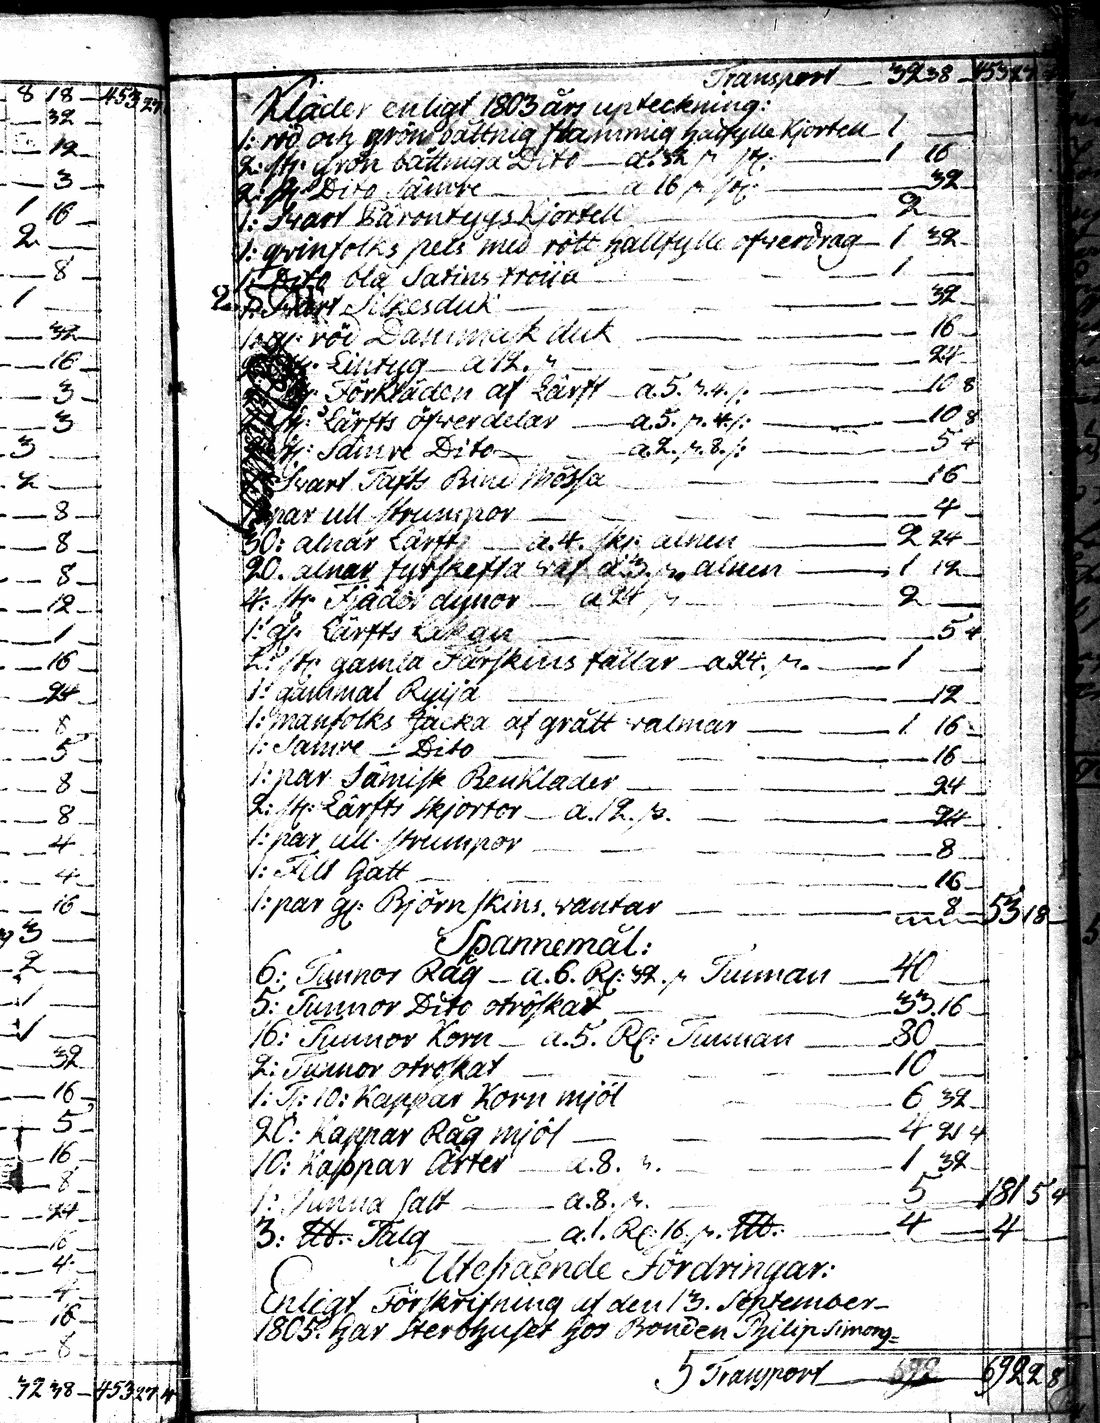 8 18 453 27 4
32
12
3
1 16
2
8
1
32
16
3
3
3
2
8
8
8
12
1
16
24
8
5
8
8
4
4
16
3
2
1
1
32
16
5
16
8
24
16
4
4
16
8
3238 453 27 4
Transport 3238 453 27 4
Kläder enligt 1803 års upteckning:
1: röd och grön bättnig flammig halfylle Kjortell 1
2: st: Grön bättniga Dito a 32 s. st: 1 16
2: st: Dito Sämre a 16 s. st: 32
1: Svart Barontygs Kjortell 2
1: qvinfolks pels med rött hallfylle öfwerdrag 1 32
1: Dito blå Satins tröija 1
2. Svart Silkesduk 32
1: gl: röd Danmask duk 16
st: Lintyg a 12. s. 24
st: Förkläden af Lärft a. 5. s. 4. r: 10 8
st: Lärfts öfwerdelar a. 5. s. 4. r: 10 8
st: Sämre Dito a. 2. s. 8. r: 5 4
Svart Tafts Bind Mössa 16
par ull strumpor 4
30: alnar Lärft a. 4. sk: alnen 2 24
20. alnar fyrskefta waf a 3. s. alnen 1 12
4. st: Fjäder dynor a 24 s. 2
1: gl: Lärfts Lakan 5 4
2: st: gamla Fårskins fällar a 24. s. 1
1: gammal Ryija 12
1: manfolks Jacka af grått walmar 1 16
1: Sämre Dito 16
1: par Sämisk Benkläder 24
2: st: Lärfts skjortor a. 12. s. 24
1: par ull strumpor 8
1: Filt Hatt 16
1: par gl: Björnskins wantar 8 53 18
Spannemål:
6: Tunnor Råg a. 6. Rd: 32. s. Tunnan 40
5: Tunnor Dito otröskat 33. 16
16: Tunnor Korn a. 5. Rd: Tunnan 80
2: Tunnor otröskat 10
1: T: 10: Kappar Korn mjöl 6 32
20: Kappar Råg mjöl 4 21 4
10: Kappar Ärter a. 8. s. 1 32
1: Tunna salt a. 8. s. 5 181 5 4
3: Talg a. 1. Rd: 16. s. 4 4
Utestående Fordringar:
Enligt Förskrifning af den 13. September
1805. har Sterbhuset hos Bonden Philip Simons=
Transport 692 692 2 8